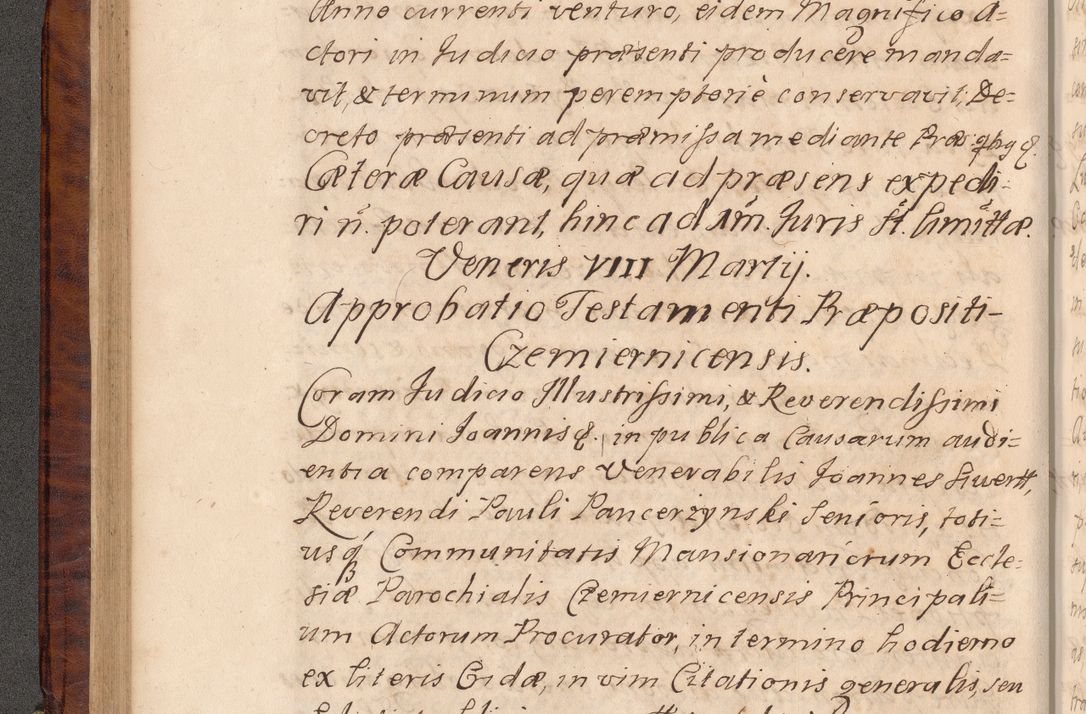 Anno currenti venturo, eidem Magnifico A=
ctori in Judicio præsenti producere manda=
vit, & terminum peremptoriè conservavit, De=
creto præsenti ad præmissa mediante Præs:
Cæteræ Causæ, quæ ad præsens expedi=
ri n. poterant, hinc ad im. Juris st. limittæ.
Veneris VIII Martij.
Approbatio Testamenti Præpositi-
Czemiernicensis.
Coram Judicio Illustrissimi, & Reverendissimi
Domini Joannis &. in publica Causarum audi=
entia comparens Venerabilis Joannes Siwertt,
Reverendi Pauli Pancerzynski Senioris, toti=
usq́ Communitatis Mansionariorum Eccle=
siæ Parochialis Czemiernicensis Principali=
um Actorum Procurator, in termino hodierno
ex literis Cridæ, in vim Citationis generalis, seu